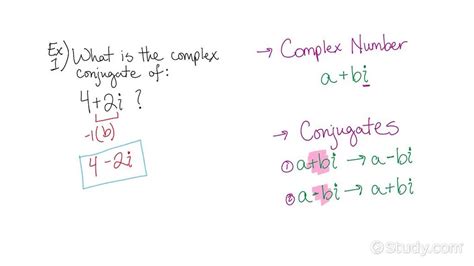 Ex 1) What is the complex
conjugate of:
4+2i ?
-1(b)
4-2i
→ Complex Number
a+bi
→ Conjugates
① a+bi → a-bi
② a-bi → a+bi
Study.com